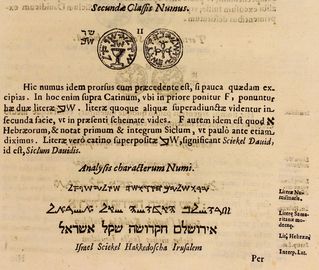 Secundæ Classis Numus.
II
Hic numus idem prorsus cum præcedente est, si pauca quædam ex-
cipias. In hoc enim supra Catinum, vbi in priore ponitur F, ponuntur
hæ duæ literæ literæ quoque aliquæ superadiunctæ videntur in
secunda facie, vt in præsenti schemate vides. F autem idem est quod א
Hebræorum, & notat primum & integrum Siclum, vt paulò ante etiam
diximus. Literæ verò catino superpositæ significant Sciekel Dauid,
id est, Siclum Dauidis.
Analysis characterum Numi.
Literæ Nu-
mismatis.
Literæ Sama-
ritanæ mo-
dernæ.
אירושלם הקרושה שקל אשראל
Lit. Hebraic
Israel Sciekel Hakkedoscha Irusalem
Interp. Lat.
Per